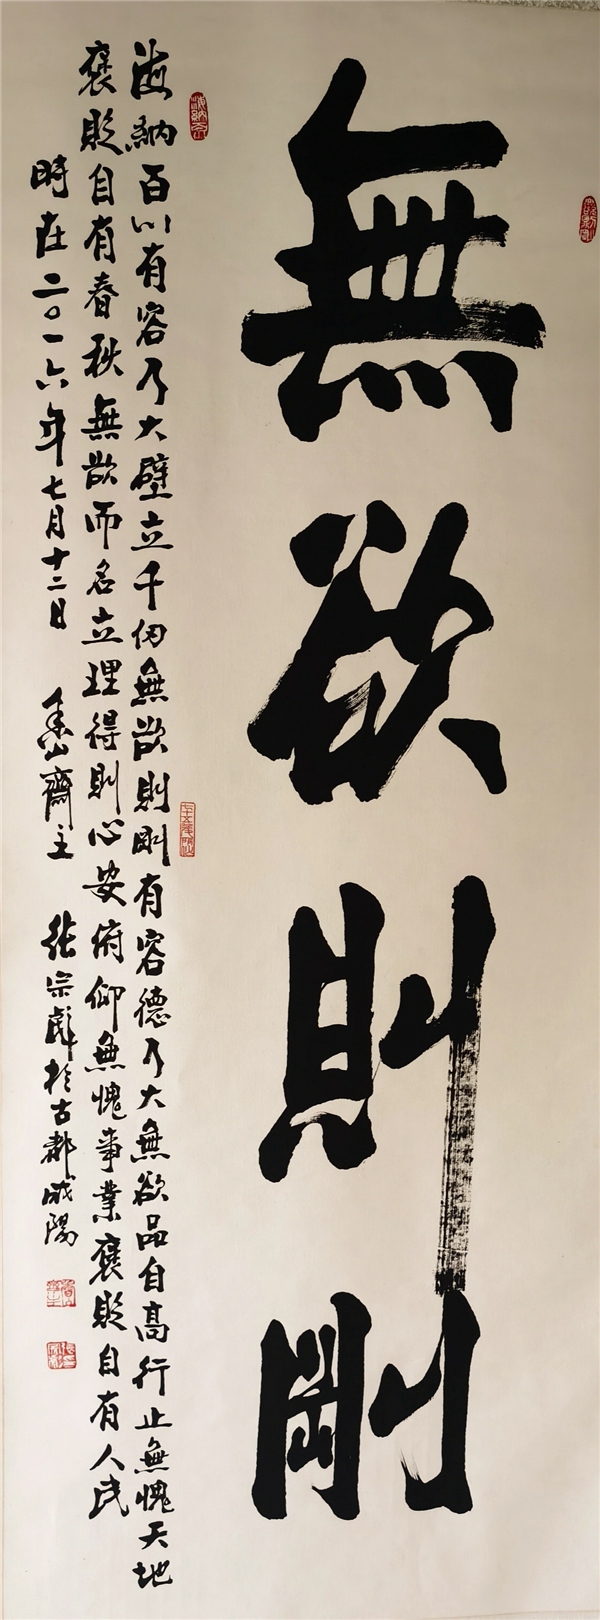 無欲則剛
海納百川有容乃大壁立千仞無欲則剛有容德乃大無欲品自高行止無愧天地
褒貶自有春秋無欲而名立理得則心安俯仰無愧事業褒貶自有人民
時在二〇一六年七月十二日 山齋主 張宗於古都咸陽